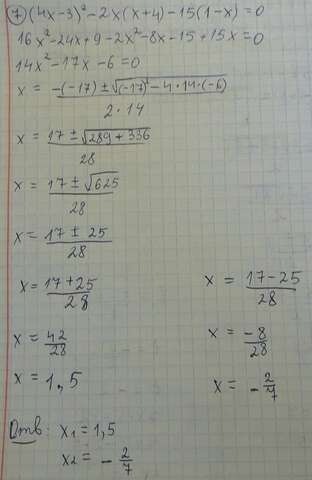 7) (4x-3)² - 2x(x+4) - 15(1-x) = 0
16x² - 24x + 9 - 2x² - 8x - 15 + 15x = 0
14x² - 17x - 6 = 0
x = (-(-17) ± √((-17)² - 4·14·(-6))) / (2·14)
x = (17 ± √(289 + 336)) / 28
x = (17 ± √625) / 28
x = (17 ± 25) / 28
x = (17 + 25) / 28
x = 42/28
x = 1,5
x = (17 - 25) / 28
x = -8/28
x = -2/7
Отв: x₁ = 1,5
x₂ = -2/7